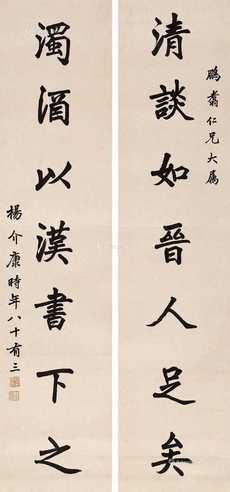 鵬翥仁兄大属
清談如晉人足矣
濁酒以漢書下之
楊介康時年八十有三